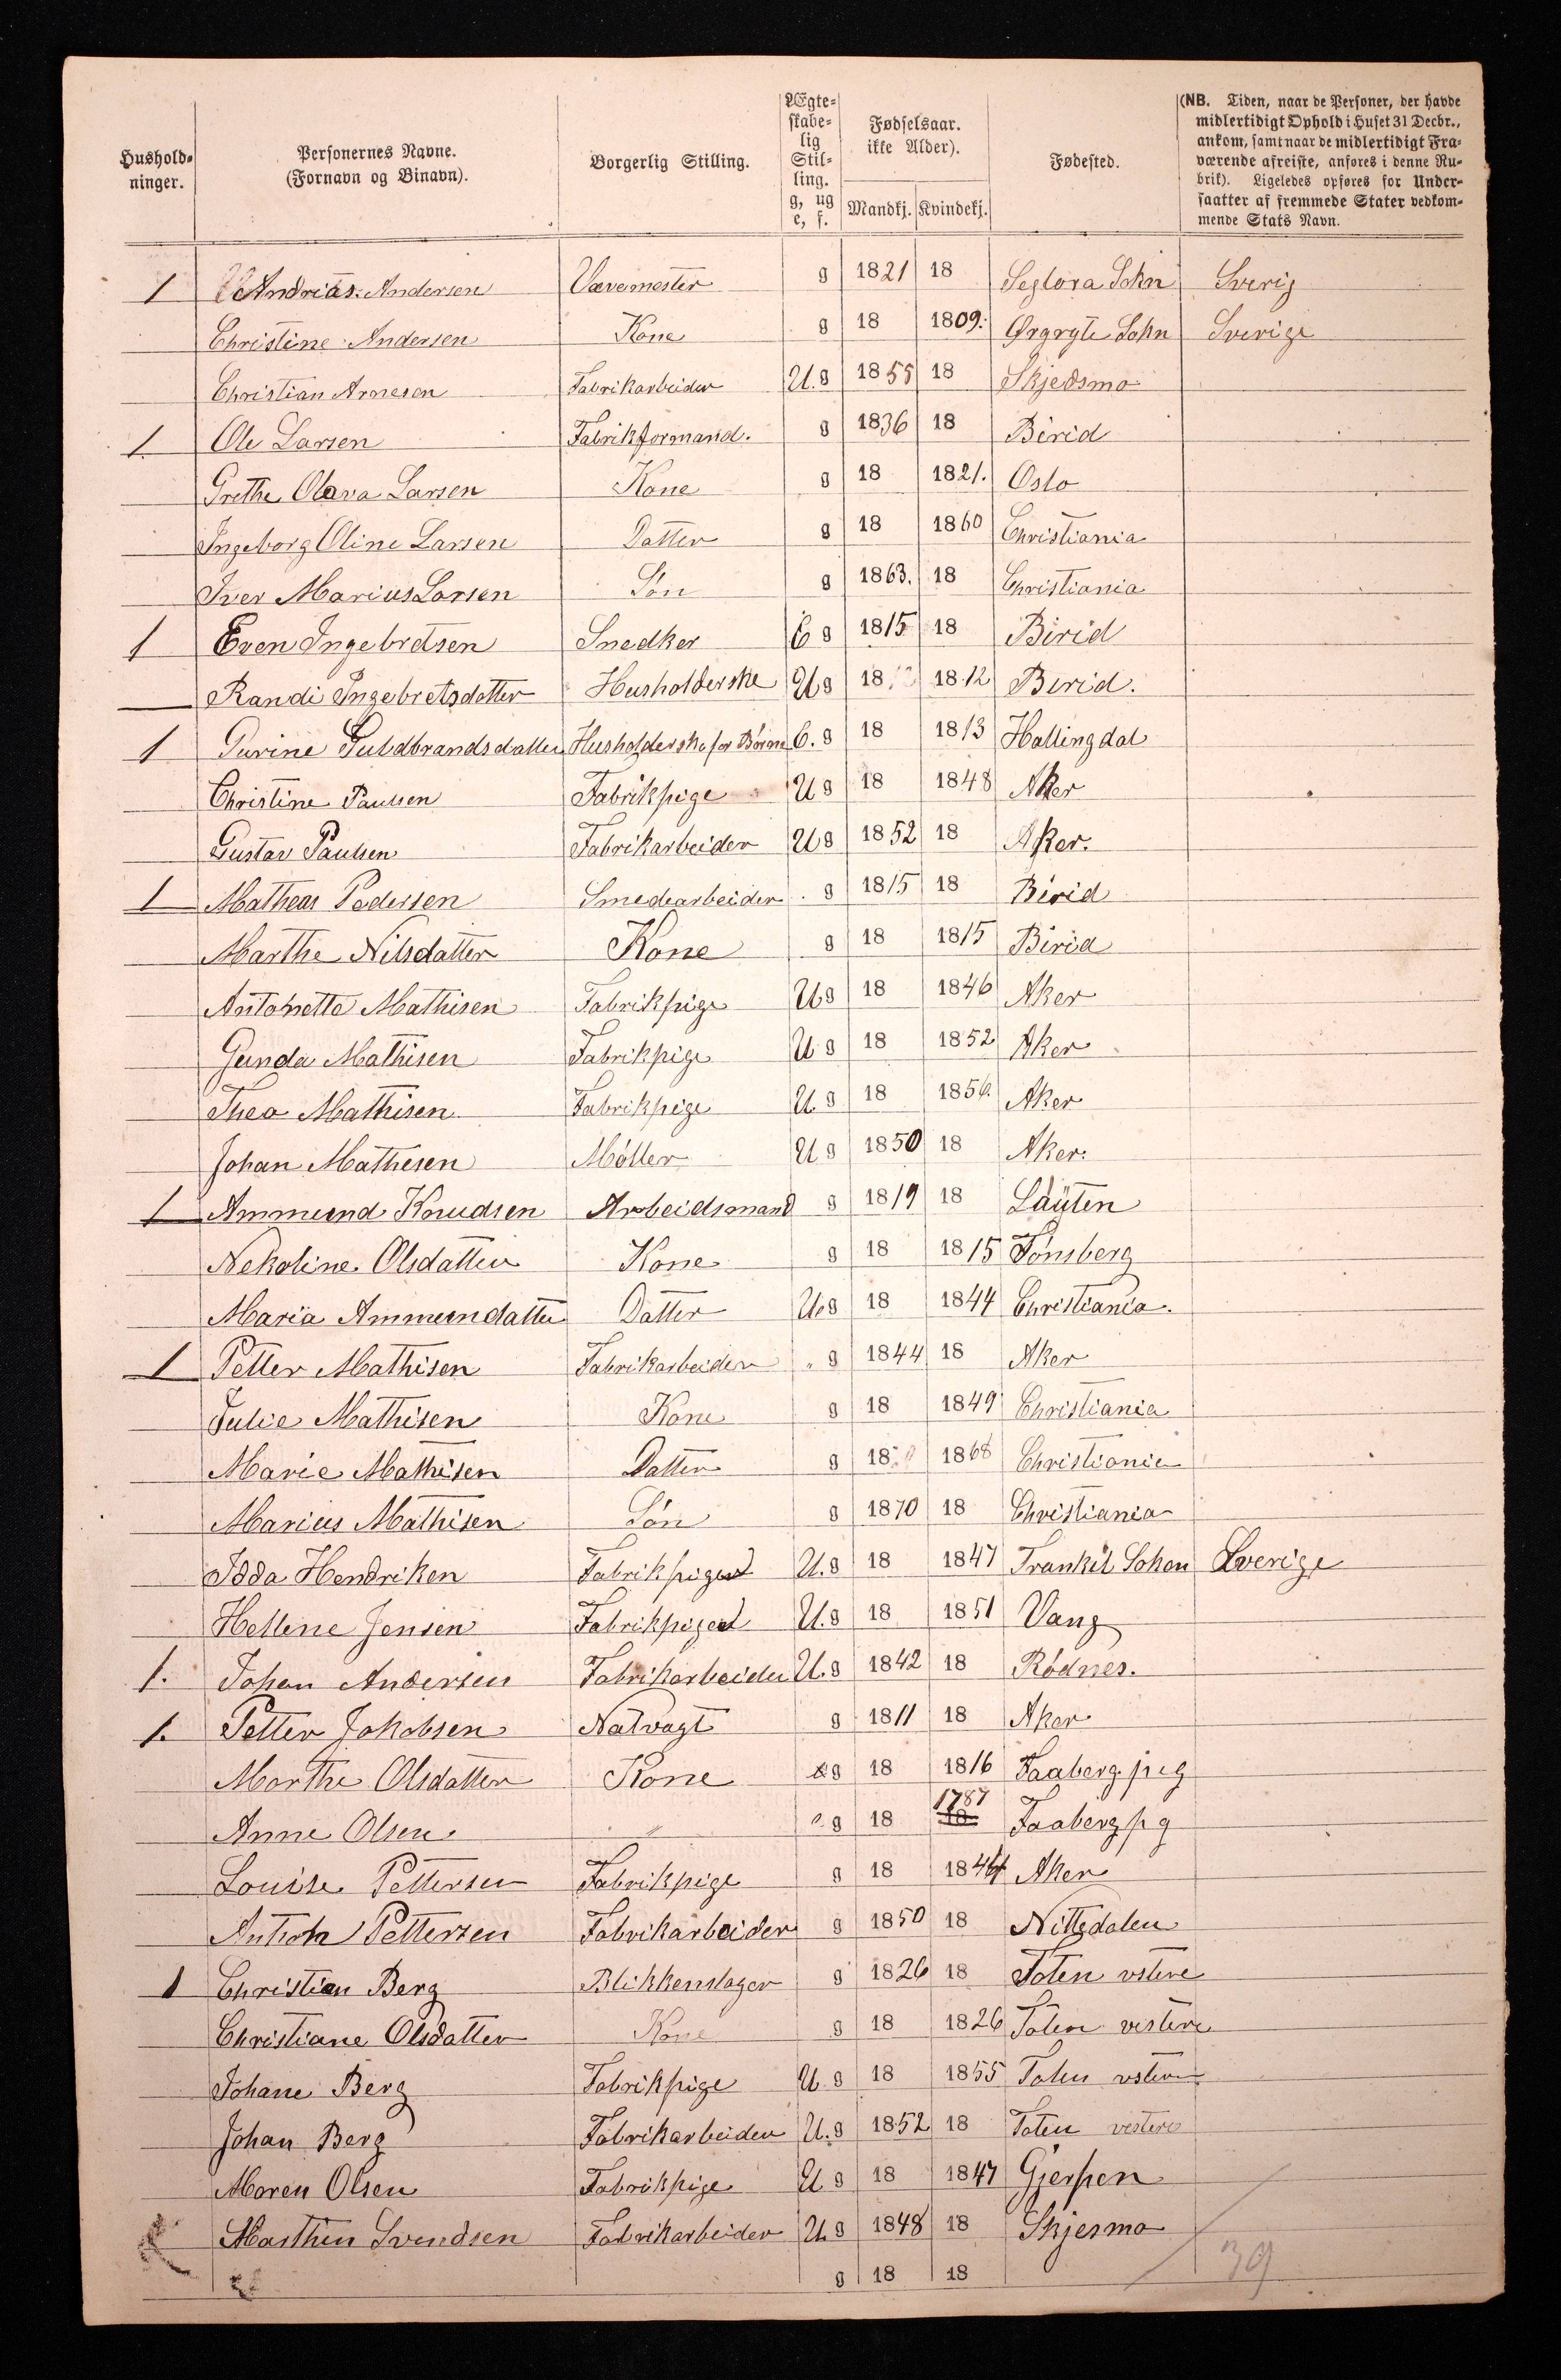 Hushold-
ninger.
Personernes Navne.
(Fornavn og Binavn).
Borgerlig Stilling.
Ægte-
skabe-
lig
Stil-
ling.
g, ug
e, f.
Fødselsaar.
ikke Alder).
Mandkj. Kvindekj.
Fødested.
(NB. Tiden, naar de Personer, der havde
midlertidigt Ophold i Huset 31 Decbr.,
ankom, samt naar de midlertidigt Fra-
værende afreiste, anføres i denne Ru-
brik). Ligeledes opføres for Under-
saatter af fremmede Stater vedkom-
mende Stats Navn.
1 Andrias Andersen Vævemester g 1821 18 Seglora Sokn Sverig
Christine Andersen Kone g 18 1809. Ørgryte Sokn Sverige
Christian Arnesen Fabrikarbeider U.g 1855 18 Skjedsmo
1. Ole Larsen Fabrikformand. g 1836 18 Birid
Grethe Olava Larsen Kone g 18 1821. Oslo
Ingeborg Oline Larsen Datter g 18 1860 Christiania
Iver Marius Larsen Søn g 1863. 18 Christiania
1 Even Ingebretsen Snedker E g 1815 18 Birid
Randi Ingebretsdatter Husholderske Ug 18 1812 Birid.
1 Gurine Guldbrandsdatter Husholderske for Børn E. g 18 1813 Hallingdal
Christine Paulsen Fabrikpige U g 18 1848 Aker
Gustav Paulsen Fabrikarbeider Ug 1852 18 Aker.
1 Matheas Pedersen Smedearbeider g 1815 18 Birid
Marthe Nilsdatter Kone g 18 1815 Birid
Antonette Mathisen Fabrikpige Ug 18 1846 Aker
Gunda Mathisen Fabrikpige U g 18 1852 Aker
Thea Mathisen Fabrikpige U g 18 1856. Aker
Johan Mathisen Møller U g 1850 18 Aker.
1 Ammund Knudsen Arbeidsmand g 1819 18 Løuten
Nekoline Olsdatter Kone g 18 1815 Tønsberg
Maria Ammundatter Datter U.g 18 1844 Christiania.
1 Petter Mathisen Fabrikarbeider " g 1844 18 Aker
Julie Mathisen Kone g 18 1849 Christiania
Marie Mathisen Datter g 18 1868 Christiania
Marius Mathisen Søn g 1870 18 Christiania
Idda Hendriken Fabrikpige U.g 18 1847 Trankil Sokn Sverige
Hellene Jensen Fabrikpige U.g 18 1851 Vang
1. Johan Andersen Fabrikarbeider U.g 1842 18 Rødnes.
1. Petter Jakobsen Natvagt g 1811 18 Aker
Marthe Olsdatter Kone g 18 1816 Faaberg pig
Anne Olsen " " g 18 1787 Faaberg pg
Louise Pettersen Fabrikpige g 18 1844 Aker
Anton Pettersen Fabrikarbeider g 1850 18 Nittedalen
1 Christian Berg Blikkenslager g 1826 18 Toten vstere
Christiane Olsdatter Kone g 18 1826 Toten vestere
Johane Berg Fabrikpige U g 18 1855 Toten vstere
Johan Berg Fabrikarbeider U.g 1852 18 Toten vestere
Maren Olsen Fabrikpige U g 18 1847 Gjerpen
Marthin Svendsen Fabrikarbeider U g 1848 18 Skjesmo
g 18 18
39